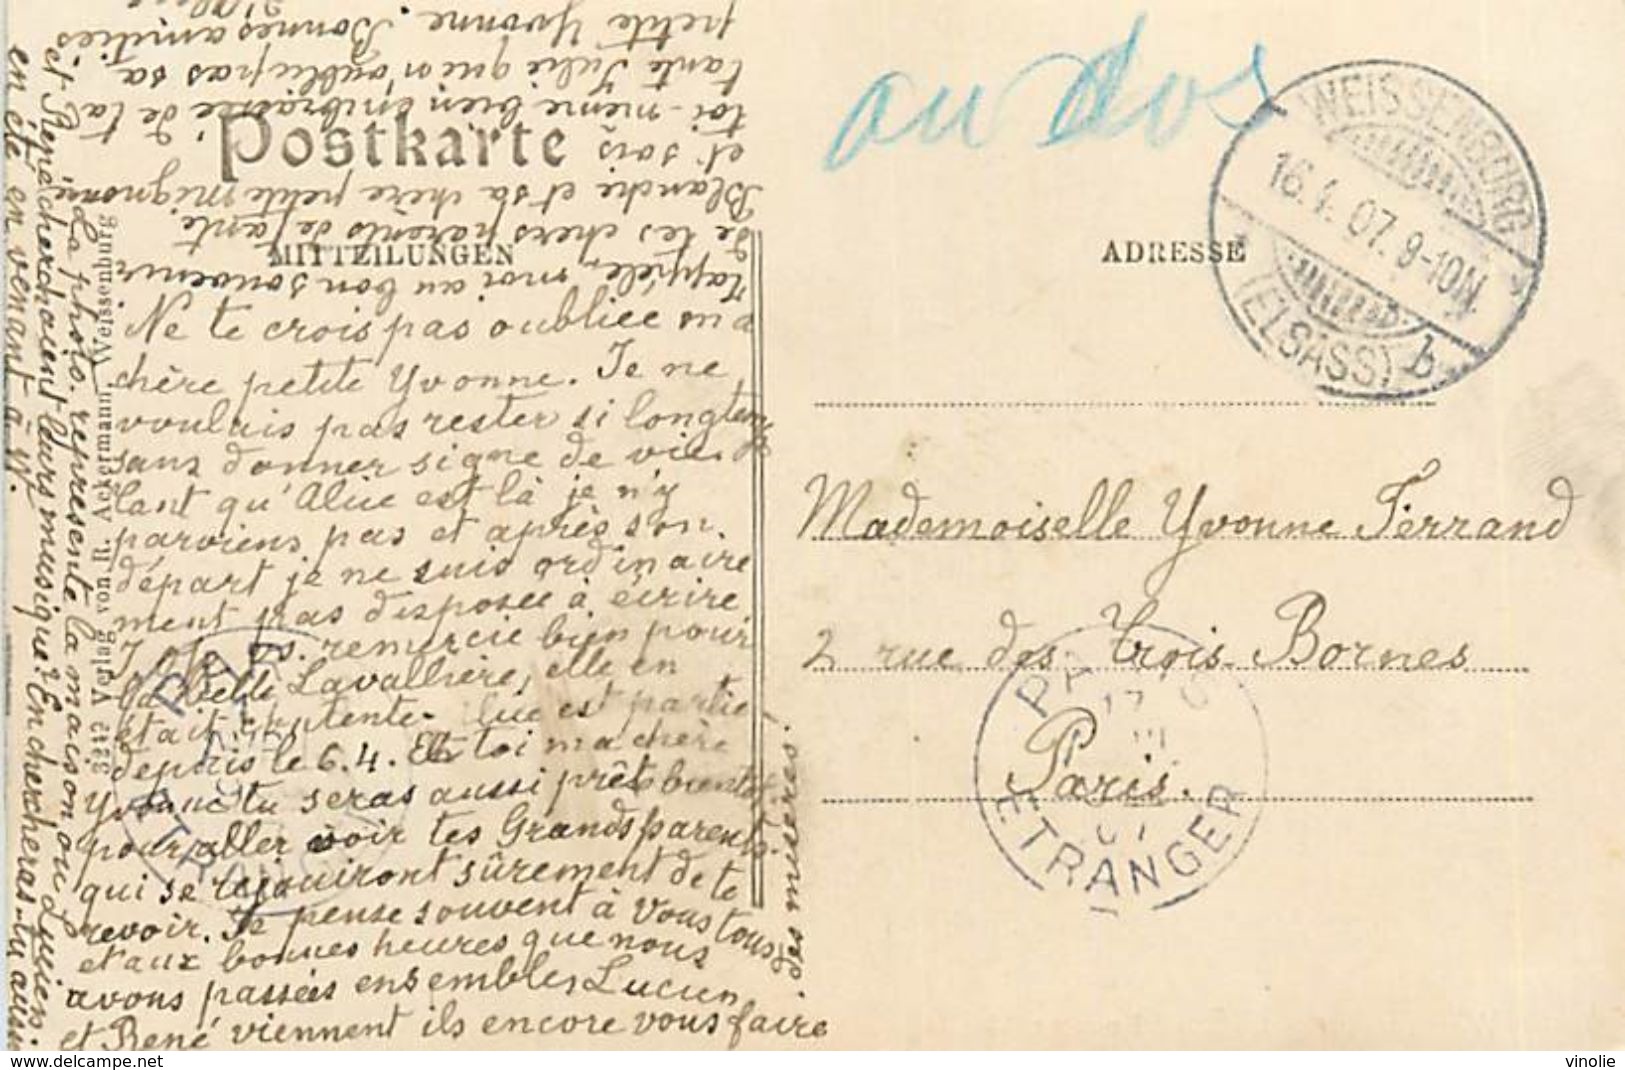 Postkarte
MITTEILUNGEN
ADRESSE
au dos
WEISSENBURG
16.4.07. 9-10N.
(ELSASS) b
Mademoiselle Yvonne Ferrand
2 rue des Trois-Bornes
Paris.
PARIS
17
07
ETRANGER
Ne te crois pas oubliée ma
chère petite Yvonne. Je ne
voulais pas rester si longtemps
sans donner signe de vie,
tant qu'Alice est là je n'y
parviens pas et après son
départ je ne suis ordinaire
ment pas disposée à écrire
remercie bien pour
la belle Lavallière, elle en
était contente. est partie
depuis le 6.4. Et toi ma chère
Yvonne tu seras aussi prêt bientôt
pour aller voir tes Grandsparents
qui se réjouiront sûrement de te
revoir. Je pense souvent à vous tous
et aux bonnes heures que nous
avons passées ensembles Lucien
et René viennent ils encore vous faire
de musique.
Rappelle moi au bon souvenir
de tes chers parents de tante
Blanche et sa chère petite mignonne
et sois
toi-même bien embrassée de ta
tante Julie qui n'oublie pas sa
petite Yvonne. Bonnes amitiés
d'Alice
La photo. représente la maison où Lucien
et René cherchaient leurs musique? En chercheras-tu aussi
en été en venant à W.
Verlag von R. Ackermann Weissenburg